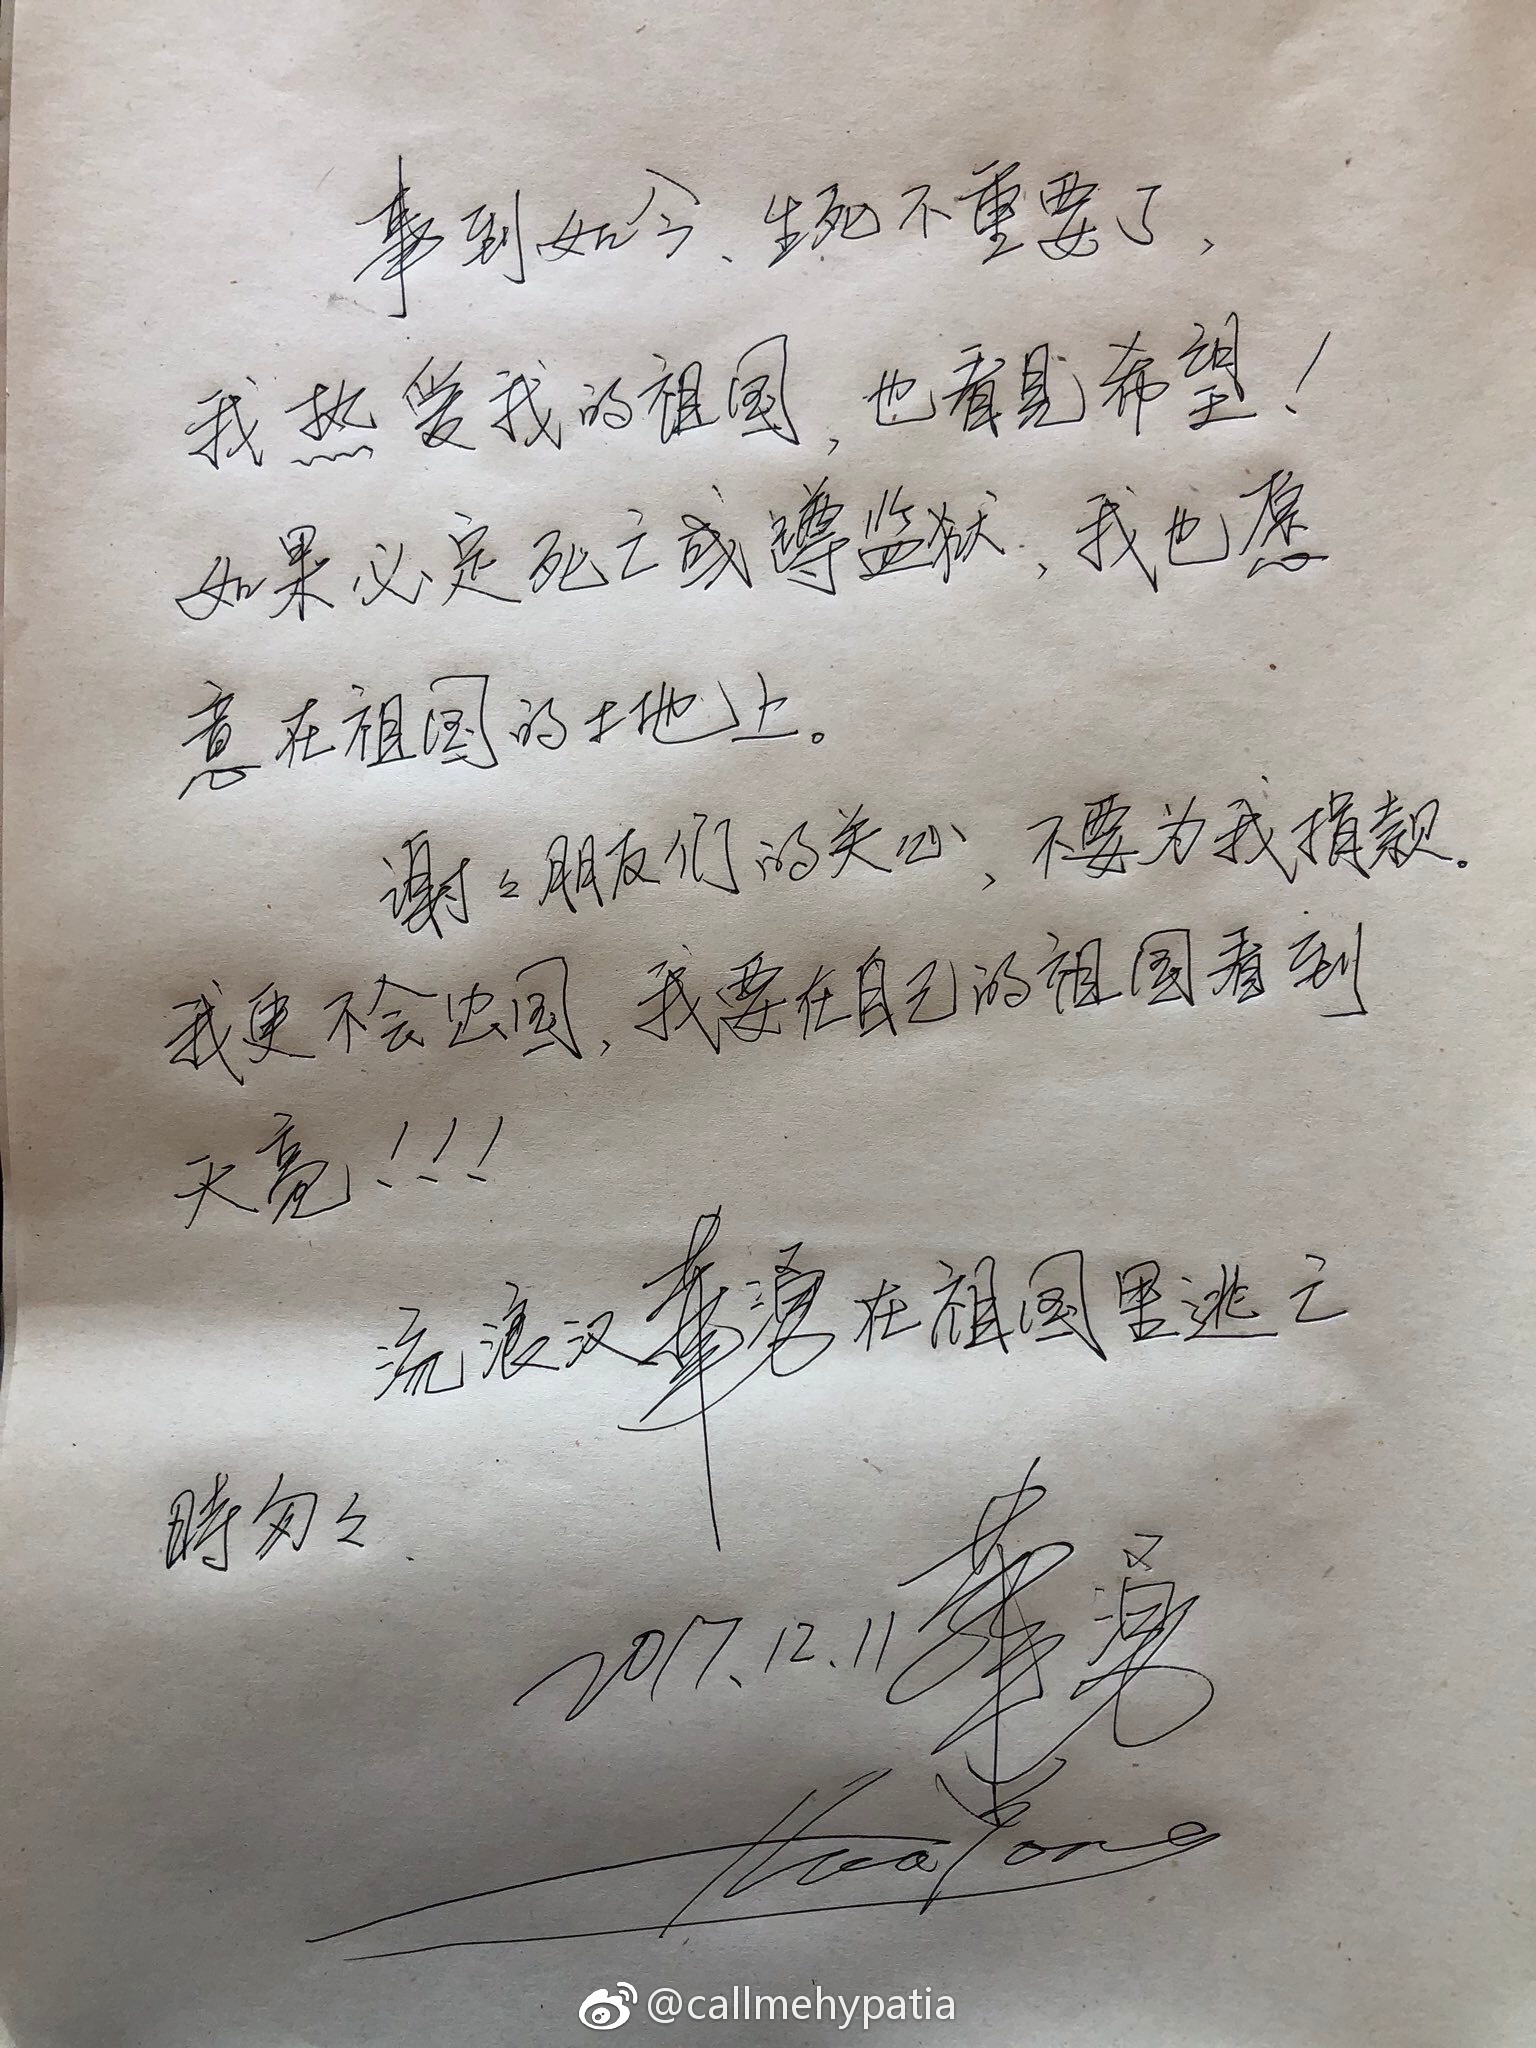 事到如今、生死不重要了，
我热爱我的祖国，也看見希望！
如果必定死亡或蹲监狱，我也愿
意在祖国的土地上。
谢々朋友们的关心，不要为我捐款。
我更不会出国，我要在自己的祖国看到
天亮！！！
流浪汉華湧在祖国里逃亡
時匆々.
2017.12.11 華湧
HuaYong
@callmehypatia